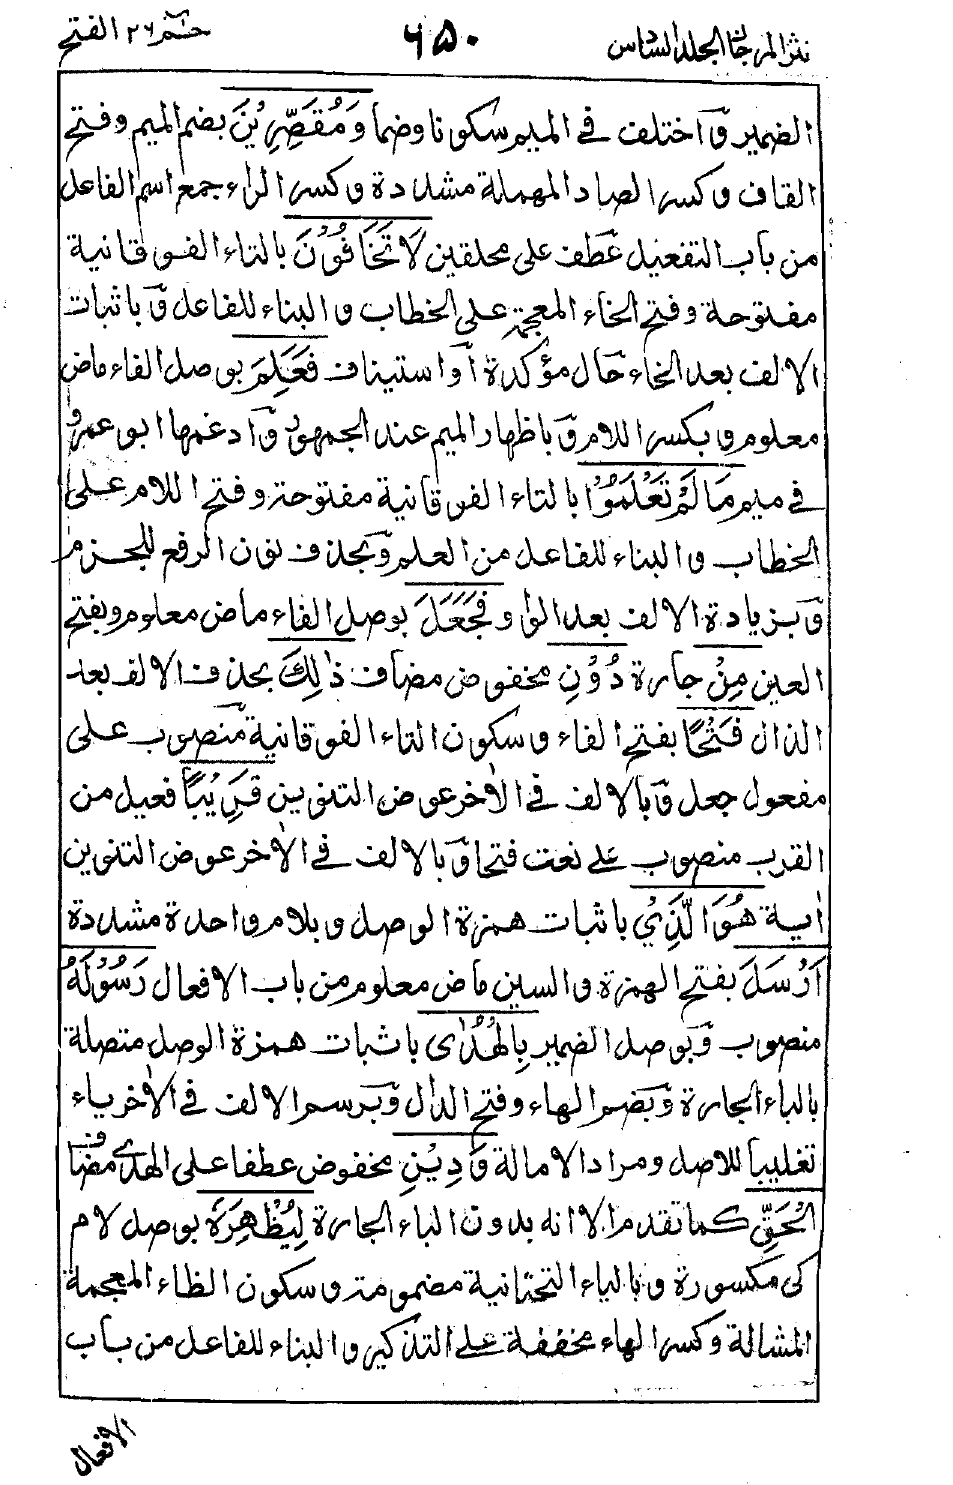 نثر المرجان الجلد السادس ۶۵۰ حٰمٓ ۲۶ الفتح
الضمير وٓ اختلف في الميم سكونا وضما وَمُقَصِّرِيْنَ بضم الميم وفتح
القاف وكسر الصاد المهملة مشددة وكسر الراء جمع اسم الفاعل
من باب التفعيل عطف على محلقين لَا تَخَافُوْنَ بالتاء الفوقانية
مفتوحة وفتح الخاء المعجمة على الخطاب والبناء للفاعل وٓ باثبات
الالف بعد الخاء حال مؤكدة أو استيناف فَعَلِمَ بوصل الفاء ماض
معلوم وبكسر اللام وٓ باظهار الميم عند الجمهور وٓ ادغمها ابو عمرو
في ميم مَا لَمْ تَعْلَمُوْا بالتاء الفوقانية مفتوحة وفتح اللام على
الخطاب والبناء للفاعل من العلم وٓ بحذف نون الرفع للجزم
وٓ بزيادة الالف بعد الواو فَجَعَلَ بوصل الفاء ماض معلوم وبفتح
العين مِنْ جارة دُوْنِ مخفوض مضاف ذٰلِكَ بحذف الالف بعد
الذال فَتْحًا بفتح الفاء وسكون التاء الفوقانية منصوب على
مفعول جعل وٓ بالالف في الاٰخر عوض التنوين قَرِيْبًا فعيل من
القرب منصوب على نعت فتحا وٓ بالالف في الاٰخر عوض التنوين
اٰية هُوَ الَّذِيْ باثبات همزة الوصل وبلام واحدة مشددة
اَرْسَلَ بفتح الهمزة والسين ماض معلوم من باب الافعال رَسُوْلَهٗ
منصوب وٓ بوصل الضمير بِالْهُدٰى باثبات همزة الوصل متصلة
بالباء الجارة وٓ بضم الهاء وفتح الدال وٓ برسم الالف في الاٰخر ياء
تغليبا للاصل ومراد الامالة وَدِيْنِ مخفوض عطفا على الهدى مضاف
الْحَقِّ كما تقدم الا انه بدون الباء الجارة لِيُظْهِرَهٗ بوصل لام
كى مكسورة وبالياء التحتانية مضمومة وسكون الظاء المعجمة
المشالة وكسر الهاء مخففة على التذكير والبناء للفاعل من باب
الافعال